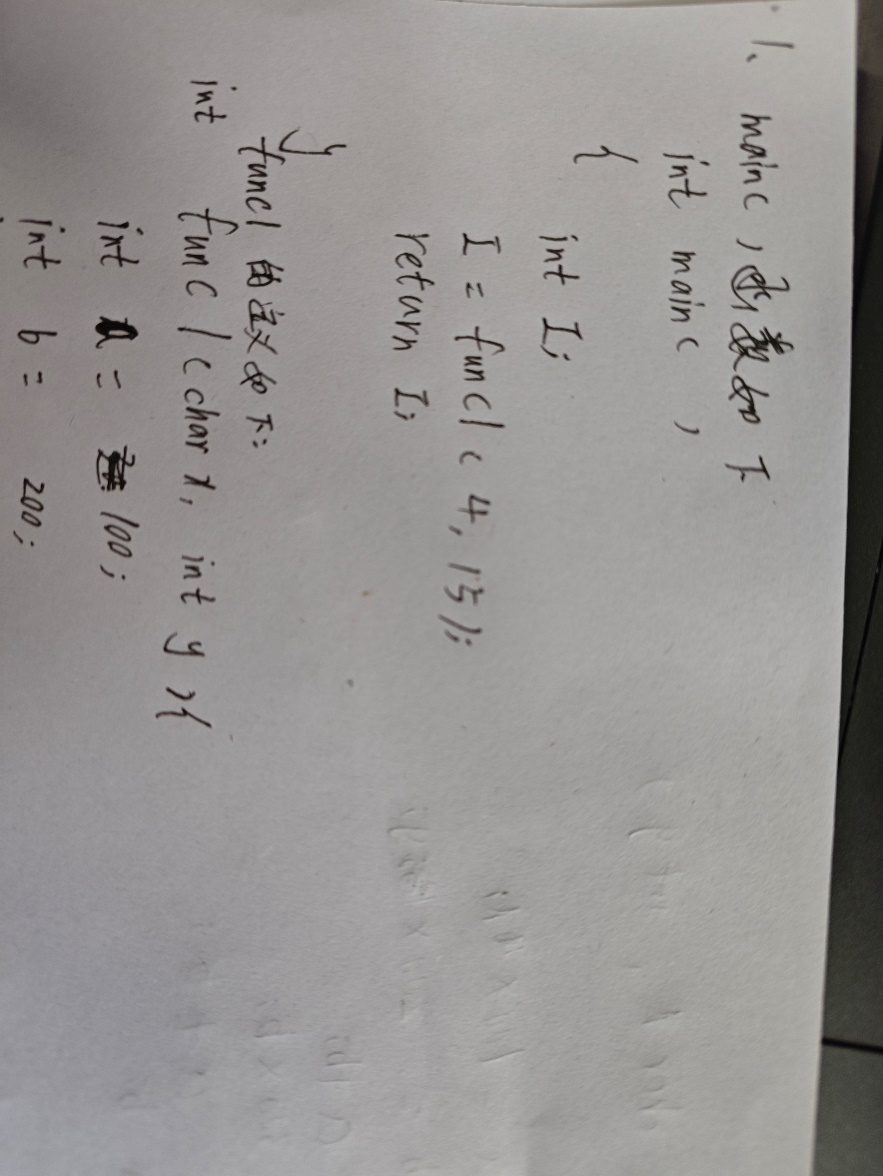 1、main()函数如下
int main()
{
int I;
I = func1(4, 15);
return I;
}
func1的定义如下:
int func1(char x, int y){
int a = 100;
int b = 200;